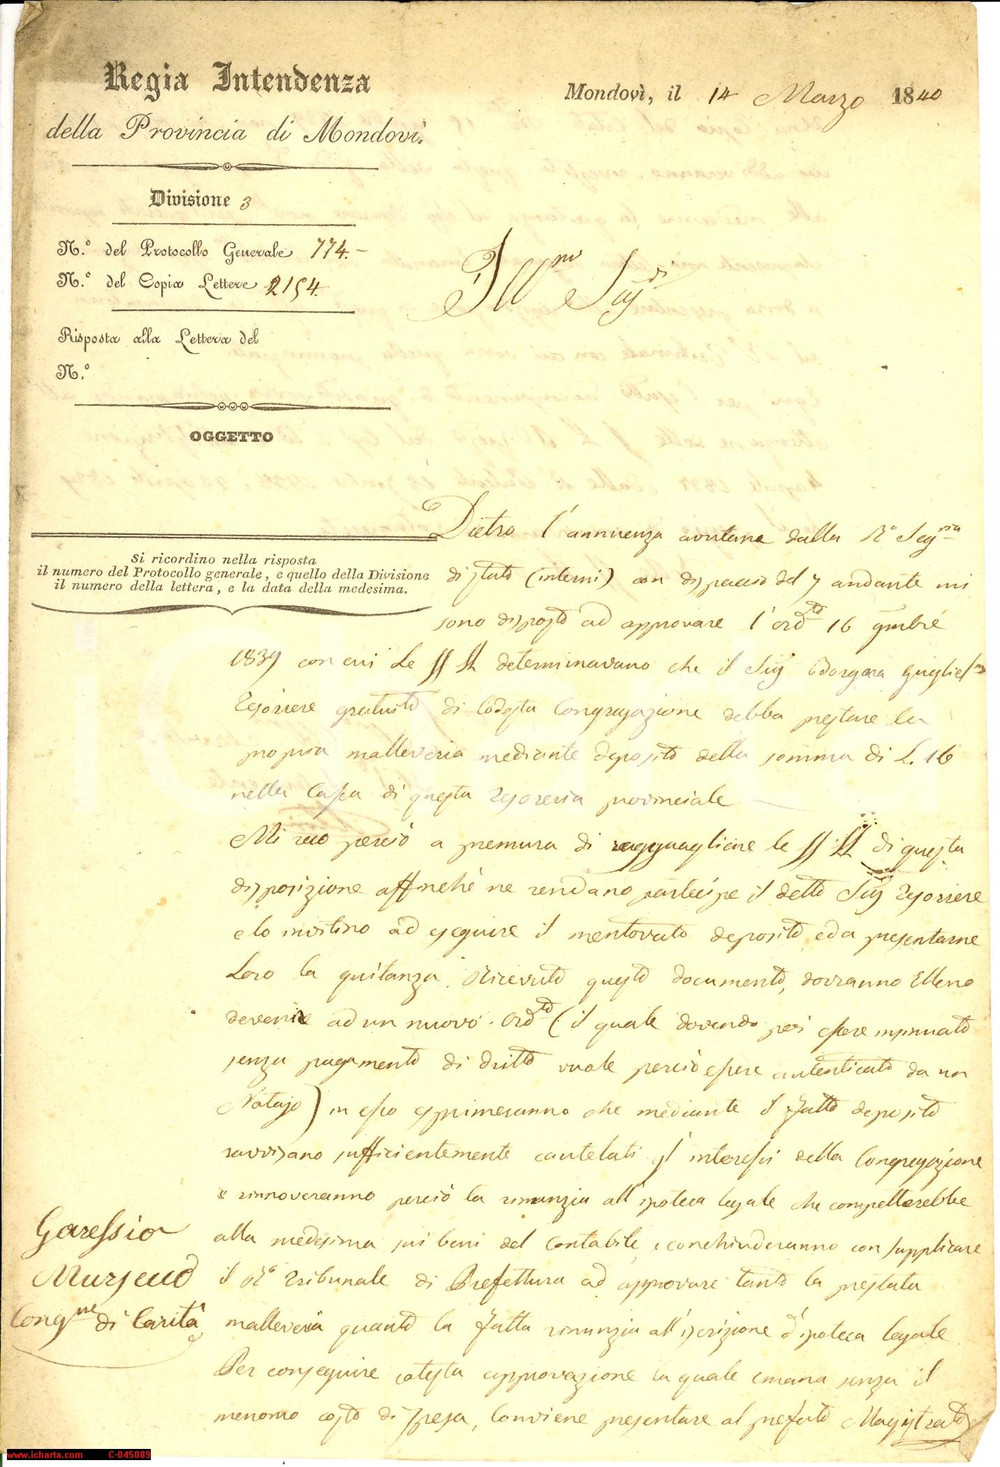 Regia Intendenza
della Provincia di Mondovì.
Mondovì, il 14 Marzo 1840
Divisione 3
N.° del Protocollo Generale 774.-
N.° del Copia Lettere 2154.
Risposta alla Lettera del
N.°
OGGETTO
Si ricordino nella risposta
il numero del Protocollo generale, e quello della Divisione
il numero della lettera, e la data della medesima.
Ill.mi Sig.ri
Dietro l'annuenza avutane dalla R.a Seg.ria
di stato (interni) con dispaccio del 7 andante mi
sono disposto ad approvare l'ord.to 16 9mbre
1839 con cui le SS LL determinavano che il Sig.
Tesoriere gratuito di Codesta Congregazione debba prestare la
propria malleveria mediante deposito della somma di L. 16
nella Cassa di questa Tesoreria provinciale
Mi reco perciò a premura di ragguagliare le SS. LL di questa
disposizione affinchè ne rendano partecipe il detto Sig Tesoriere
e lo invitino ad eseguire il mentovato deposito, ed a presentarne
Loro la quitanza. Ricevuto questo documento, dovranno Elleno
devenire ad un nuovo ord.to (il quale dovendo poi essere insinuato
senza pagamento di dritto vuole perciò essere autenticato da un
Notajo) in esso esprimeranno che mediante il fatto deposito
ravvisano sufficientemente cautelati gl'interessi della Congregazione
e rinnoveranno perciò la rinunzia all'ipoteca legale che compettarebbe
alla medesima sui beni del Contabile, e conchiuderanno con supplicare
il R.o Tribunale di Prefettura ad approvare tanto la prestata
malleveria quanto la fatta rinunzia all'iscrizione d'ipoteca legale
Per conseguire cotesta approvazione la quale emana senza il
menomo costo di spesa, conviene presentare al prefato Magistrato
Garessio
Cong.ne di Carità
www.icharta.com C-045089